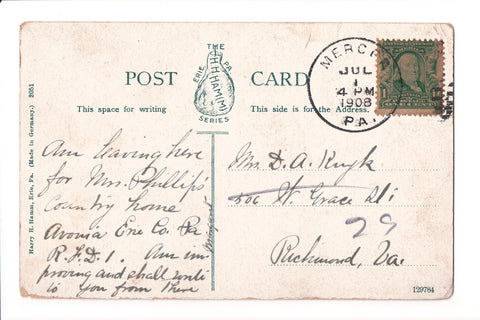 POST CARD
THE
H.H.HAM(M)
ERIE PA
SERIES
This space for writing
This side is for the Address.
MERCER
JUL
1
4 PM
1908
PA.
Am leaving here
for Mrs. Phillip's
Country home
Avonia Erie Co. Pa
R.F.D. 1. Am im-
proving and shall write
to you from there
Margaret
Mrs. D. A. Kuyk
506 W. Grace St.
29
Richmond, Va.
Harry H. Hamm, Erie, Pa. (Made in Germany.) 2051
129784